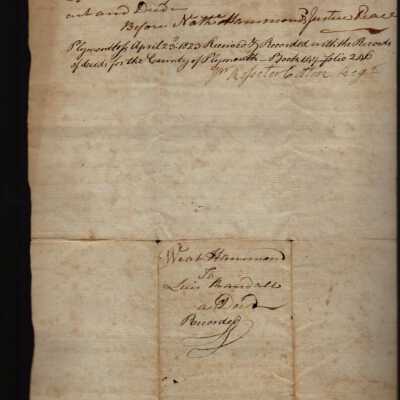 act and Deed
Before Nathl Hammond Justice Peace
Plymouth ss April 23d 1823 Received & Recorded with the Records
of deeds for the County of Plymouth Book 149 folio 246
Rossiter Cotton Regr
Hammond
To
Luis Randall
a Deed
Recorded